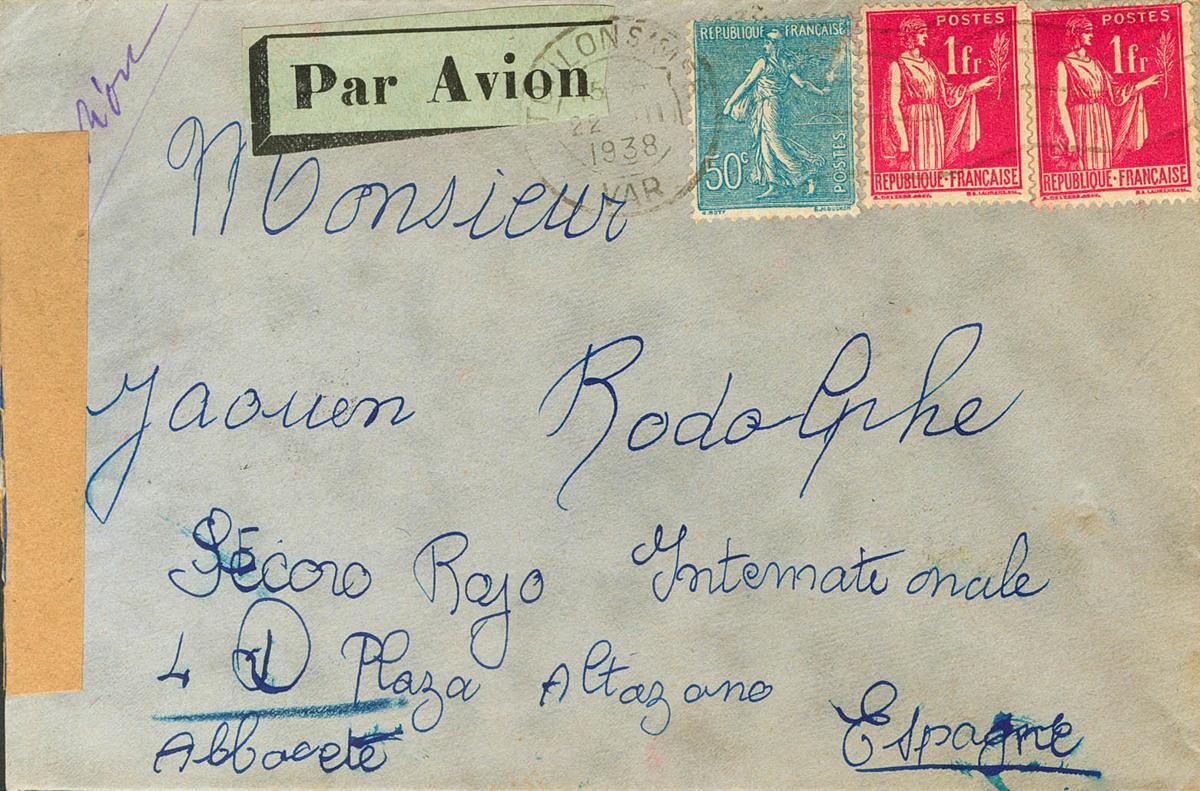 Par Avion
22
1938
VAR
REPUBLIQUE FRANÇAISE
50c
POSTES
POSTES
1fr
REPUBLIQUE-FRANÇAISE
POSTES
1fr
REPUBLIQUE-FRANÇAISE
Monsieur
Jaouen Rodolphe
Sécoro Rojo Internationale
4 Plaza Altazano
Abbacete
Espagne